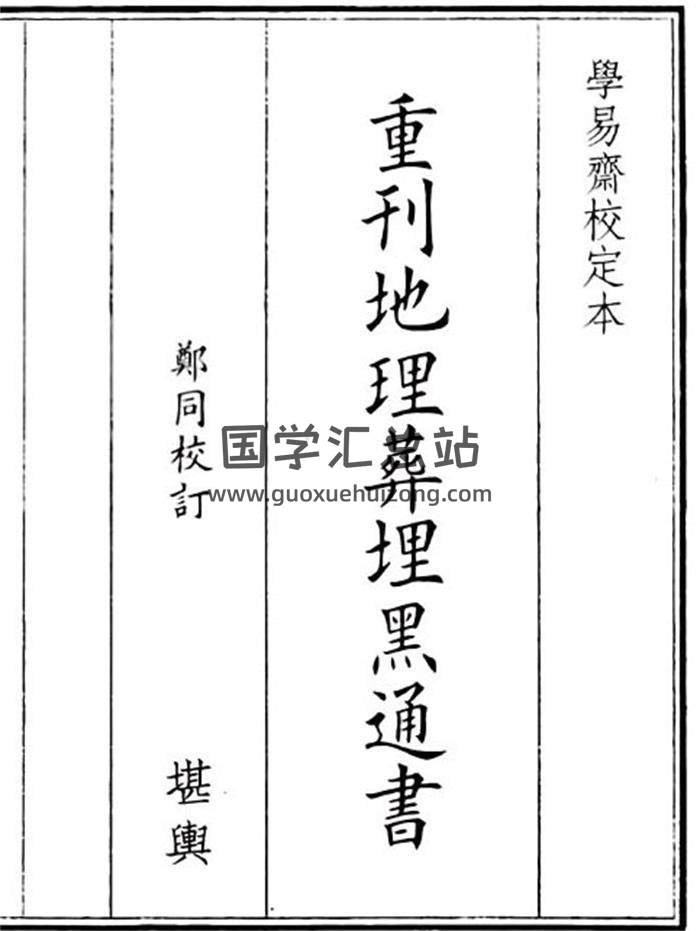 學易齋校定本
重刊地理葬埋黑通書
鄭同校訂
堪輿
国学汇总站
www.guoxuehuizong.com